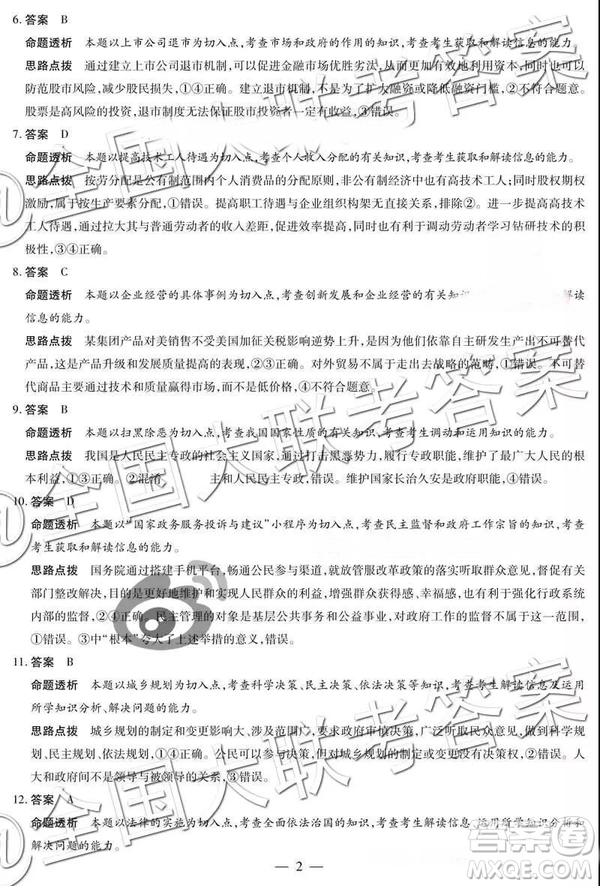 6. 答案　B
命题透析　本题以上市公司退市为切入点,考查市场和政府的作用的知识,考查考生获取和解读信息的能力。
思路点拨　通过建立上市公司退市机制,可以促进金融市场优胜劣汰,从而更加有效地利用资本,同时也可以
防范股市风险,减少股民损失,①④正确。建立退市机制,不是为了扩大融资或降低融资门槛,②不符合题意。
股票是高风险的投资,退市制度无法保证股市投资者一定有收益,③错误。
7. 答案　D
命题透析　本题以提高技术工人待遇为切入点,考查个人收入分配的有关知识,考查考生获取和解读信息的能力。
思路点拨　按劳分配是公有制范围内个人消费品的分配原则,非公有制经济中也有高技术工人;同时股权期权
激励,属于按生产要素分配,①错误。提高职工待遇与企业组织构架无直接关系,排除②。提高技术工人待遇
有助于增大与普通劳动者的收入差距,促进效率提高,③正确,同时,可以有利于调动劳动者学习钻研技术的积
极性,③④正确。
8. 答案　C
命题透析　本题以企业经营的具体事例为切入点,考查创新发展和企业经营的有关知识,考查考生获取和解读
信息的能力。
思路点拨　某集团产品对美销售不受美国加征关税影响逆势上升,是因为他们依靠自主研发生产出不可替代
产品,这是产品升级和发展质量提高的表现,②③正确。对外贸易多元化是走出去战略的范畴,①不选。不可替
代商品主要通过技术和质量赢得市场,而不是低价格,④不符合题意。
9. 答案　B
命题透析　本题以扫黑除恶为切入点,考查我国国家性质的有关知识,考查考生调动和运用知识的能力。
思路点拨　我国是人民民主专政的社会主义国家,通过打击黑恶势力,履行专政职能,维护了最广大人民的根
本利益,①正确;②混淆　　　主和人民民主,②错误。维护国家长治久安是政府职能,④错误。
10. 答案　D
命题透析　本题以“国家政务服务投诉与建议”小程序为切入点,考查民主监督和政府工作宗旨的知识,考查
考生获取和解读信息的能力。
思路点拨　国务院通过搭建手机平台,畅通公民参与渠道,就放管服改革政策的落实听取群众意见,督促有关
部门整改解决,目的是更好地维护和实现人民群众的利益,提高人民群众的幸福感,也有利于强化行政系统
内部的监督,②④正确。民主管理的对象是基层公共事务和公益事业,对政府工作的监督不属于这一范围,
①错误。③中“根本”夸大了上述举措的意义,错误。
11. 答案　B
命题透析　本题以城乡规划为切入点,考查科学决策、民主决策、依法决策等知识,考查考生解读信息及运用
所学知识分析、解决问题的能力。
思路点拨　城乡规划的制定和变更影响大、涉及范围广,要求政府审慎决策,广泛听取民众意见,坚持科学规
划、民主规划、依法规划,①④正确。公民可以参与城乡规划制定或变更但没有决策权力,②错误。人
大和政府间不是领导与被领导的关系,③错误。
12. 答案　A
命题透析　本题以法律的实施为切入点,考查全面依法治国的知识,考查考生解读信息、运用所学知识分析和
解决问题的能力。
— 2 —
@全国大联考答案
答案圈
MXQE.COM